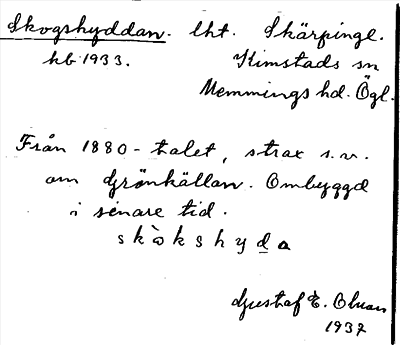 Skogshyddan. lht. Skärpinge.
hb 1933. Kimstads sn
Memmings hd. Ögl.
Från 1880-talet, strax s.v.
om Grönkällan. Ombyggd
i senare tid.
skòkshyda
Gustaf E. Olsson
1937